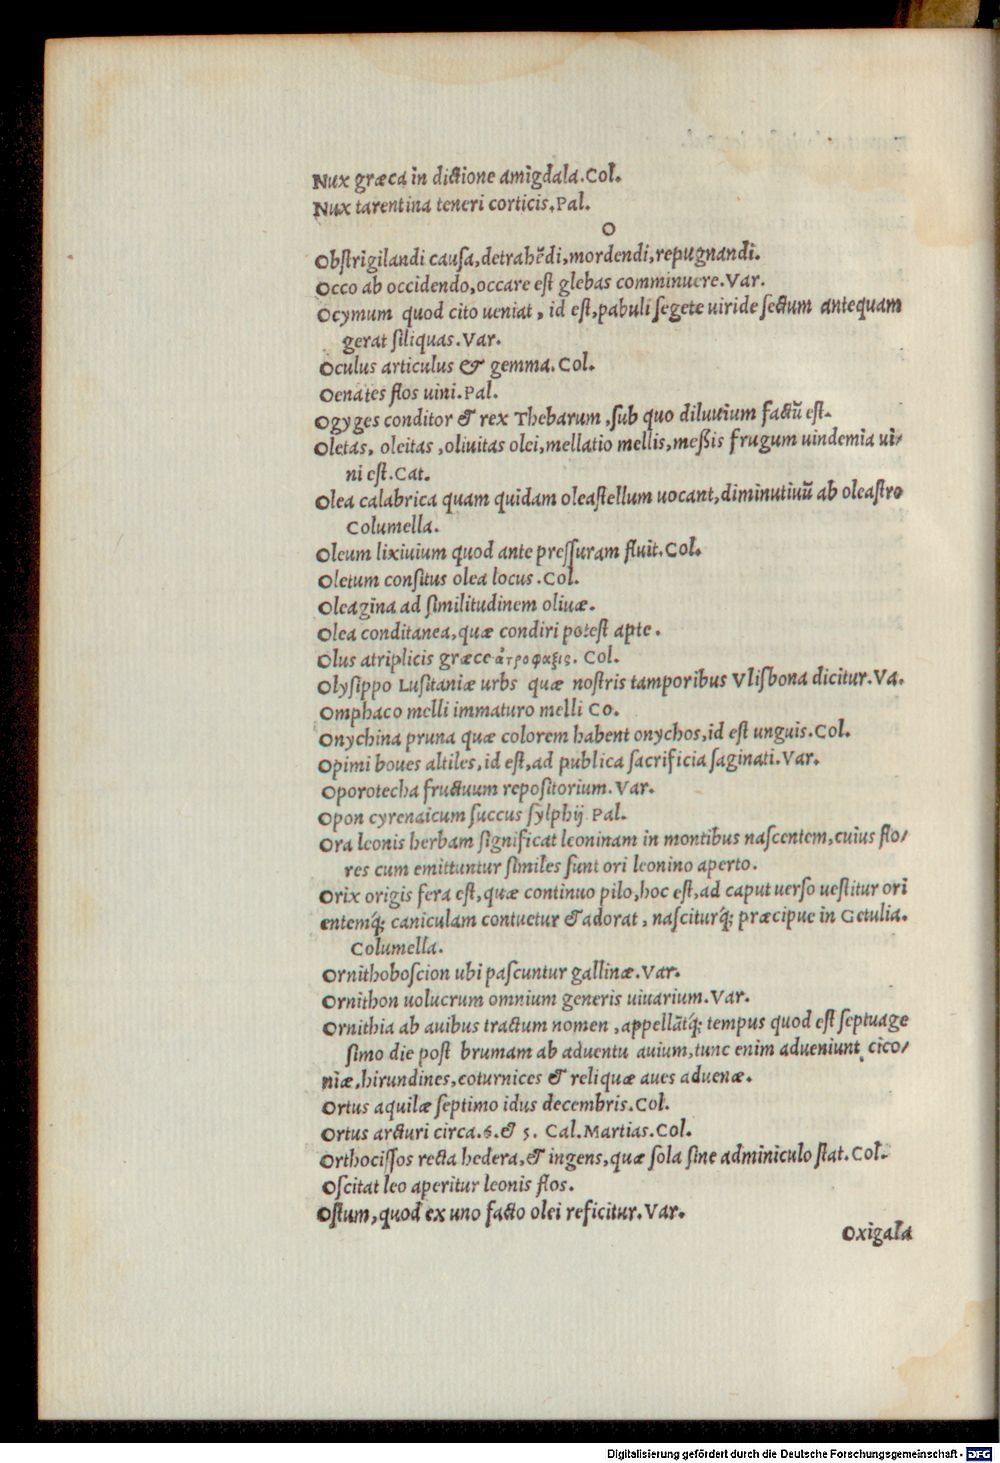 Nux græca in dictione amigdala.Col.
Nux tarentina teneri corticis.Pal.
O
Obstrigilandi causa,detrahēdi,mordendi,repugnandi.
Occo ab occidendo,occare est glebas comminuere.Var.
Ocymum quod cito ueniat, id est,pabuli segete uiride sectum antequam
gerat siliquas.Var.
Oculus articulus & gemma.Col.
Oenates flos uini.Pal.
Ogyges conditor & rex Thebarum,sub quo diluuium factū est.
Oletas, oleitas,oliuitas olei,mellatio mellis,meßis frugum uindemia ui/
ni est.Cat.
Olea calabrica quam quidam oleastellum uocant,diminutiuū ab oleastro
Columella.
Oleum lixiuium quod ante pressuram fluit.Col.
Oletum consitus olea locus.Col.
Oleagina ad similitudinem oliuæ.
Olea conditanea,quæ condiri potest apte.
Olus atriplicis græce ἀτροφαξις. Col.
Olysippo Lusitaniæ urbs quæ nostris tamporibus Vlisbona dicitur.Va.
Omphaco melli immaturo melli Co.
Onychina pruna quæ colorem habent onychos,id est unguis.Col.
Opimi boues altiles,id est,ad publica sacrificia saginati.Var.
Oporotecha fructuum repositorium.Var.
Opon cyrenaicum succus sylphij Pal.
Ora leonis herbam significat leoninam in montibus nascentem,cuius flo/
res cum emittuntur similes sunt ori leonino aperto.
Orix origis fera est,quæ continuo pilo,hoc est,ad caput uerso uestitur ori
entemq́; caniculam contuetur & adorat, nasciturq́; præcipue in Getulia.
Columella.
Ornithoboscion ubi pascuntur gallinæ.Var.
Ornithon uolucrum omnium generis uiuarium.Var.
Ornithia ab auibus tractum nomen,appellātq́; tempus quod est septuage
simo die post brumam ab aduentu auium,tunc enim adueniunt cico/
niæ,hirundines,coturnices & reliquæ aues aduenæ.
Ortus aquilæ septimo idus decembris.Col.
Ortus arcturi circa.6.& 5. Cal.Martias.Col.
Orthocissos recta hedera,& ingens,quæ sola sine adminiculo stat.Col.
Oscitat leo aperitur leonis flos.
Ostum,quod ex uno facto olei reficitur.Var.
Oxigala
Digitalisierung gefördert durch die Deutsche Forschungsgemeinschaft - DFG